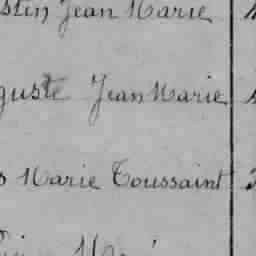 stin Jean Marie
guste Jean Marie
Marie Toussaint